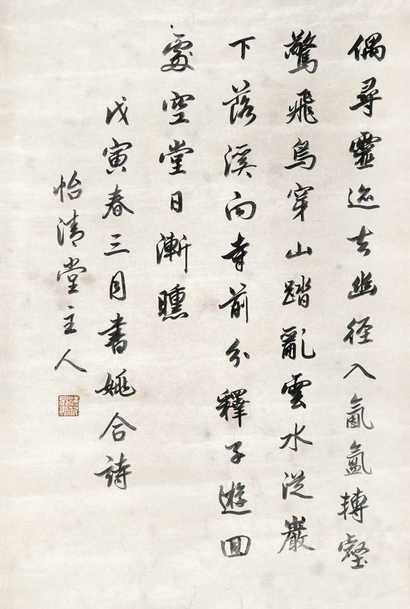 偶尋靈迹去幽徑入氤氳轉壑
驚飛鳥穿山踏亂雲水從巖
下落溪向寺前分釋子遊回
處空堂日漸曛
戊寅春三月書姚合詩
怡清堂主人